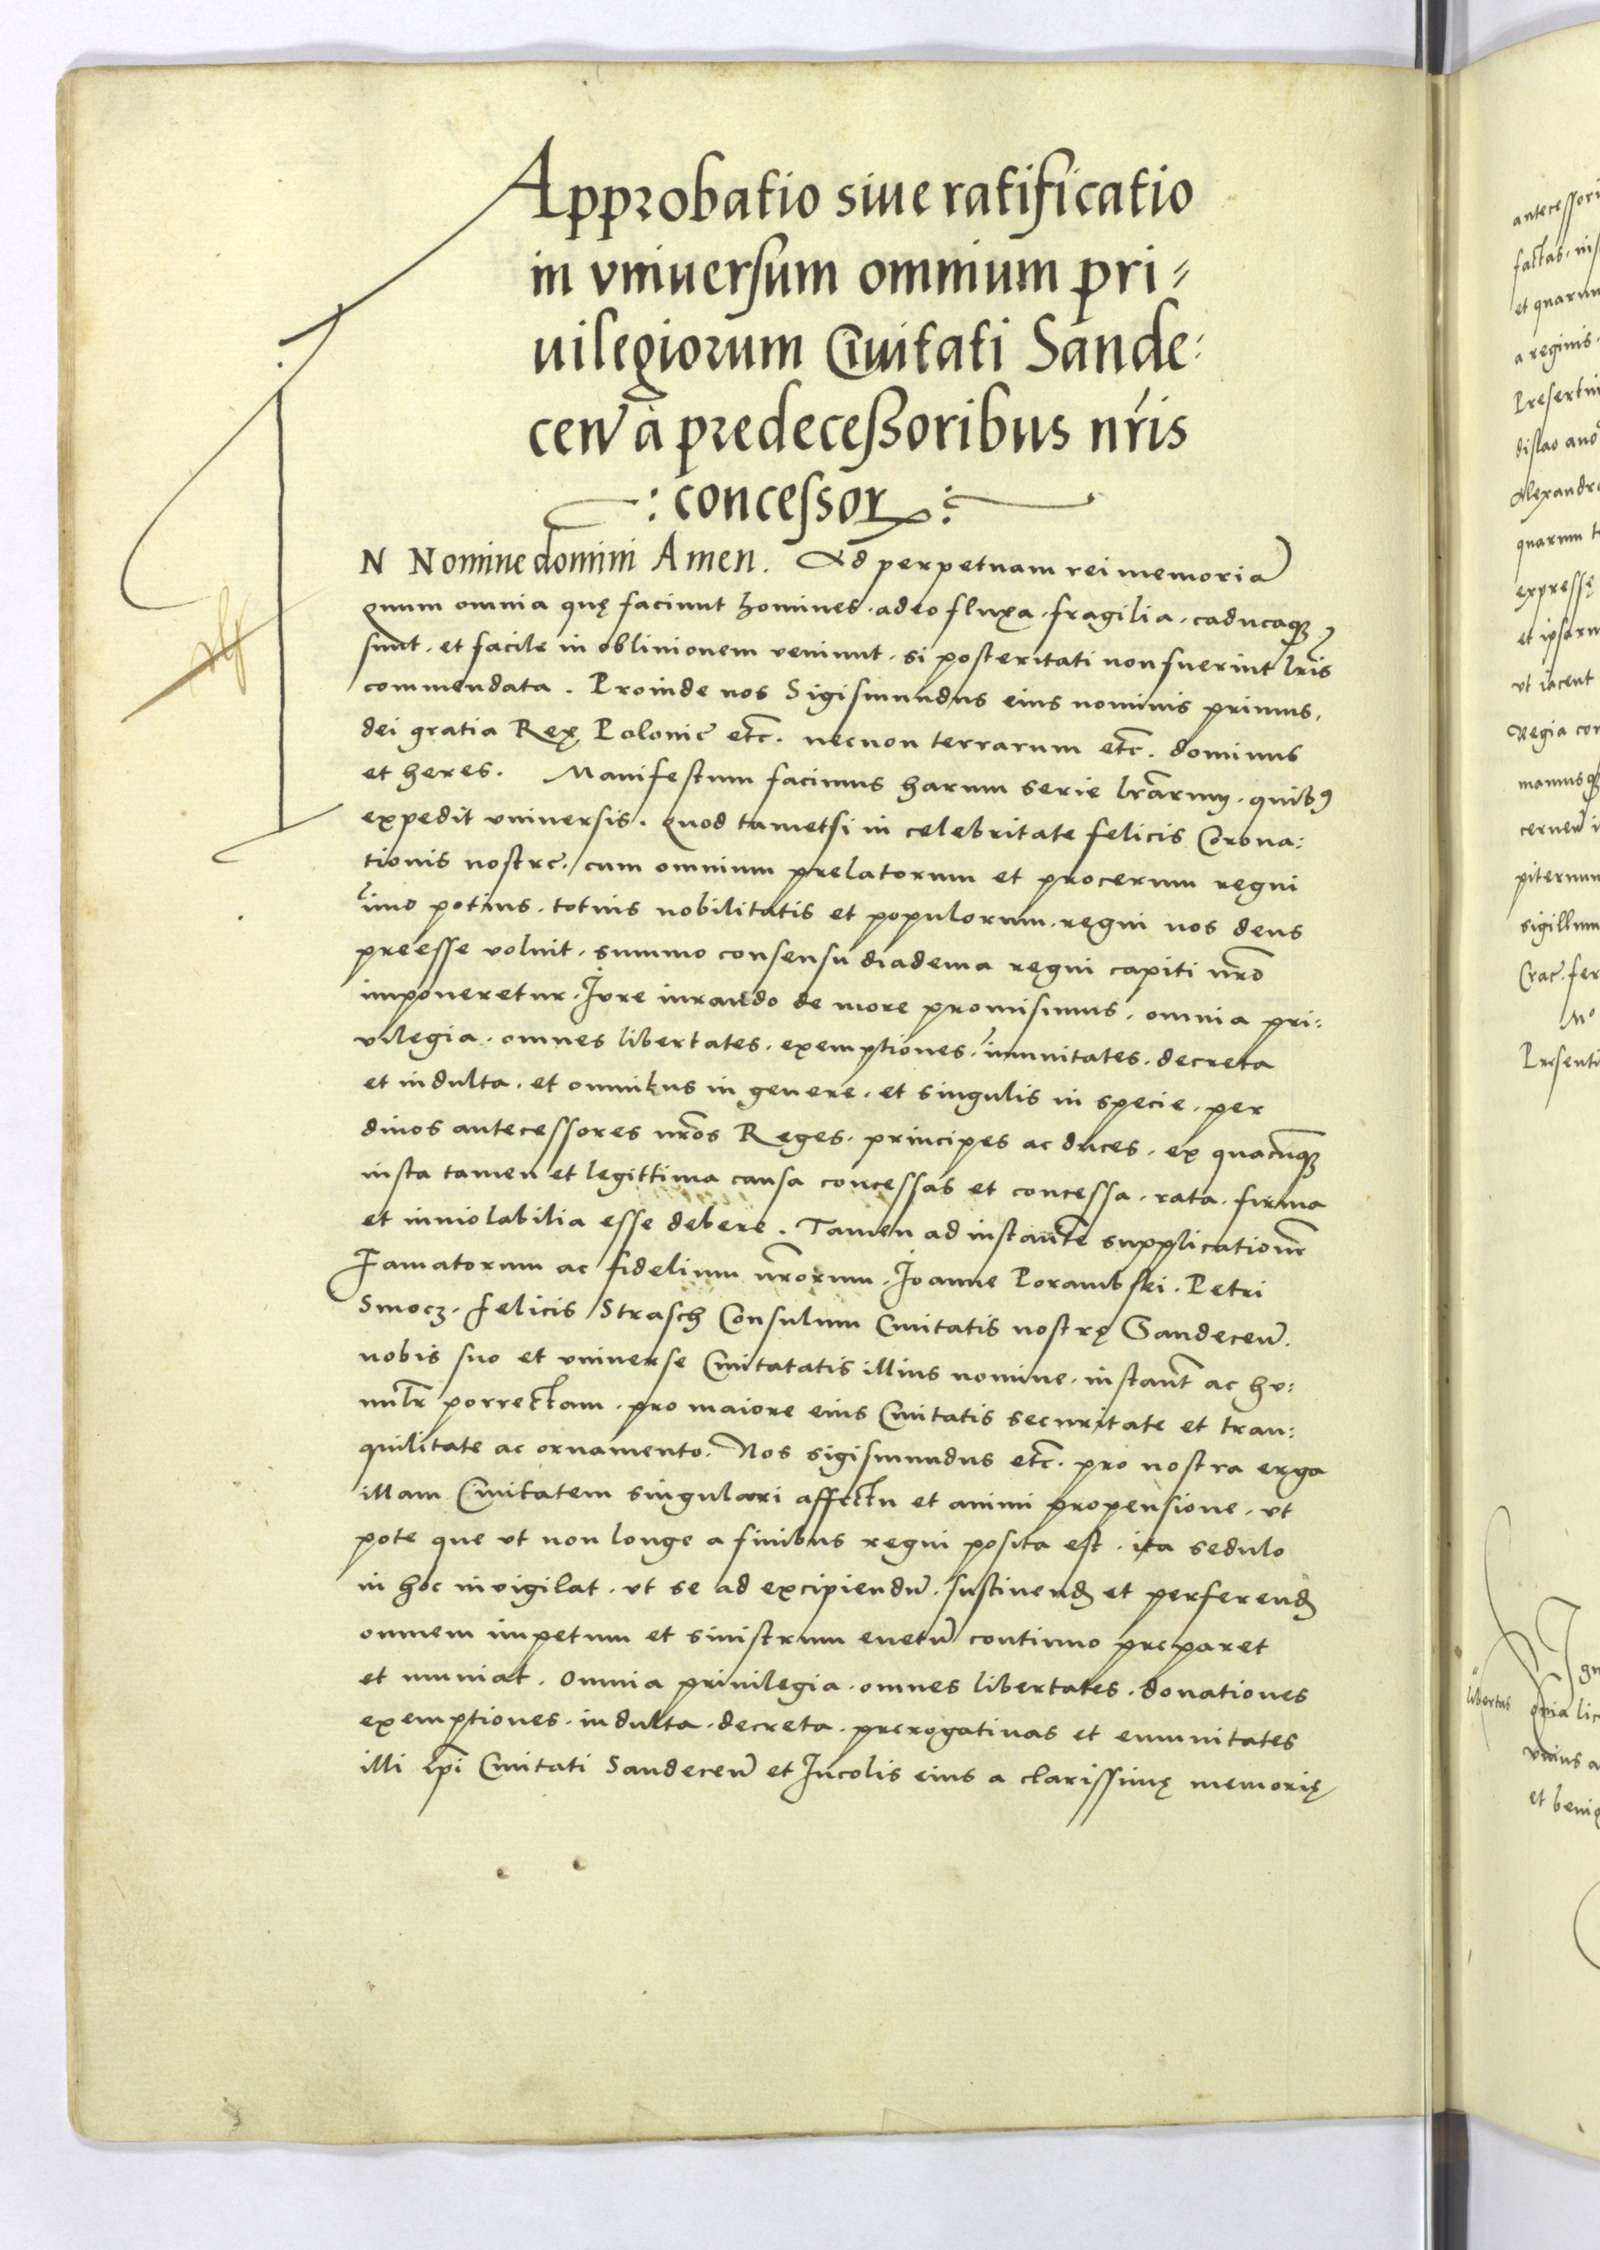 Approbatio siue ratificatio
in vniuersum omnium pri⸗
uilegiorum Ciuitati Sande⸗
cen̄ à predecessoribus nr̄is
: concessoꝝ :
IN Nomine domini Amen. Ad perpetuam rei memoriā
quum omnia quę faciunt homines. adeo fluxa. fragilia. caducaqꝫ
sunt. et facile in obliuionem veniunt. si posteritati non fuerint lr̄is
commendata. Proinde nos Sigismundus eius nominis primus.
dei gratia Rex Polonię etc̄. necnon terrarum etc̄. dominus
et heres. Manifestum facimus harum serie lr̄arum. quibꝰ
expedit vniuersis. quod tametsi in celebritate felicis Corona:
tionis nostrę. cum omnium prelatorum et procerum regni
imo potius. totius nobilitatis et populorum. regni nos deus
preesse voluit. summo consensu diadema regni capiti nr̄o
imponeretur. Jure iurando de more promisimus. omnia pri:
vilegia. omnes libertates. exemptiones. im̄unitates. decreta
et indulta. et omnibus in genere. et singulis in specie. per
diuos antecessores nr̄os Reges. principes ac duces. ex quacūqꝫ
iusta tamen et legittima causa concessas et concessa. rata. firma
et inuiolabilia esse debere. Tamen ad instantē supplicationē
Famatorum ac fidelium nr̄orum. Joanne Porambski. Petri
Smocz. Felicis Strasch Consulum Ciuitatis nostrę Sandecen̄.
nobis suo et vniuerse Ciuitatatis illius nomine. instant̄ ac hu:
milr̄ porrectam. pro maiore eius Ciuitatis securitate et tran:
quilitate ac ornamento. Nos sigismundus etc̄. pro nostra erga
illam Ciuitatem singulari affectu et animi propensione. vt
pote que vt non longe a finibus regni posita est. ita sedulo
in hoc invigilat. vt se ad excipiendū. sustinend̄ et perferend̄
omnem impetum et sinistrum euetū continuo preparet
et muniat. Omnia priuilegia. omnes libertates. donationes
exemptiones. indulta. decreta. prerogatiuas et emunitates
illi ip̄i Ciuitati Sandecen̄ et Jncolis eius a clarissimę memorię